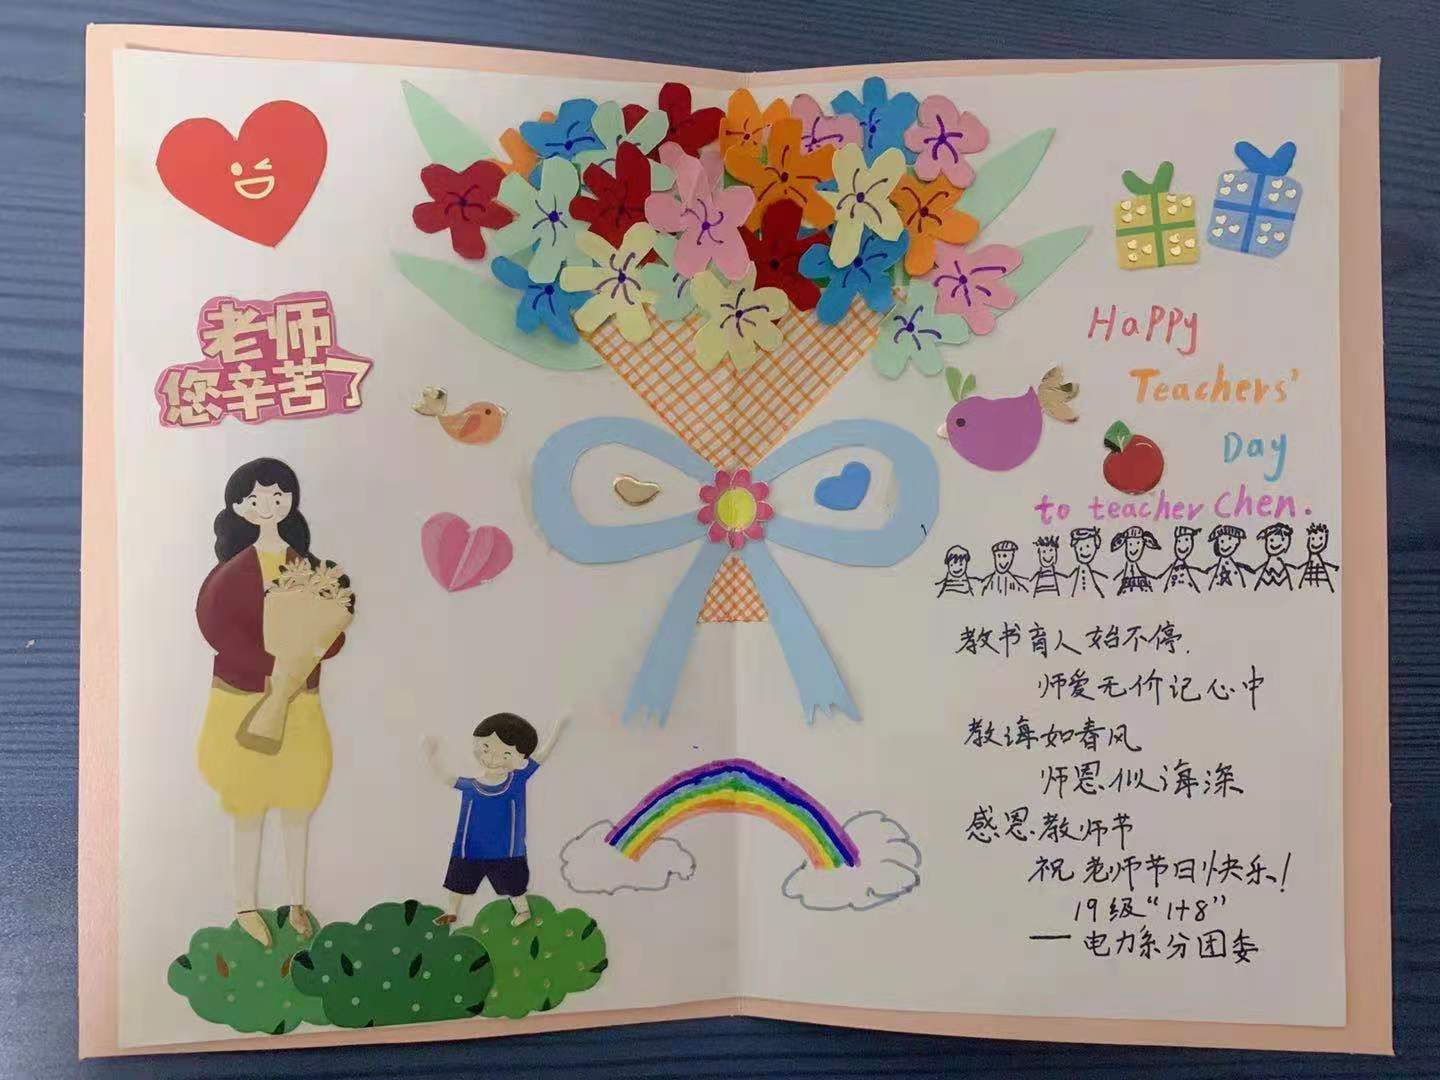 老师
您辛苦了
Happy
Teachers'
Day
to teacher Chen.
教书育人始不停.
师爱无价记心中
教海如春风
师恩似海深
感恩教师节
祝老师节日快乐!
19级“1+8”
—电力系分团委